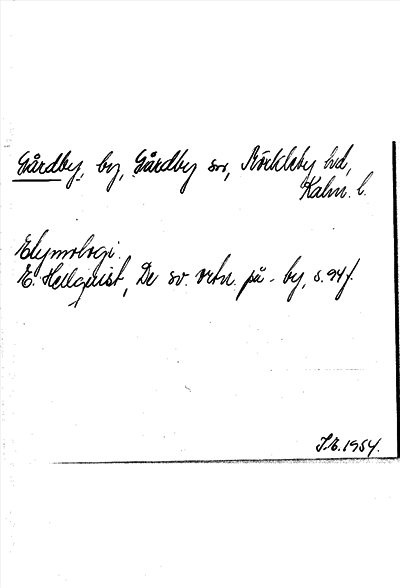 Gårdby, by, Gårdby sn, Möckleby hd,
Kalm. l.
Etymologi.
E. Hellquist, De sv. ortn. på -by, s. 94 f.
I.E. 1954.